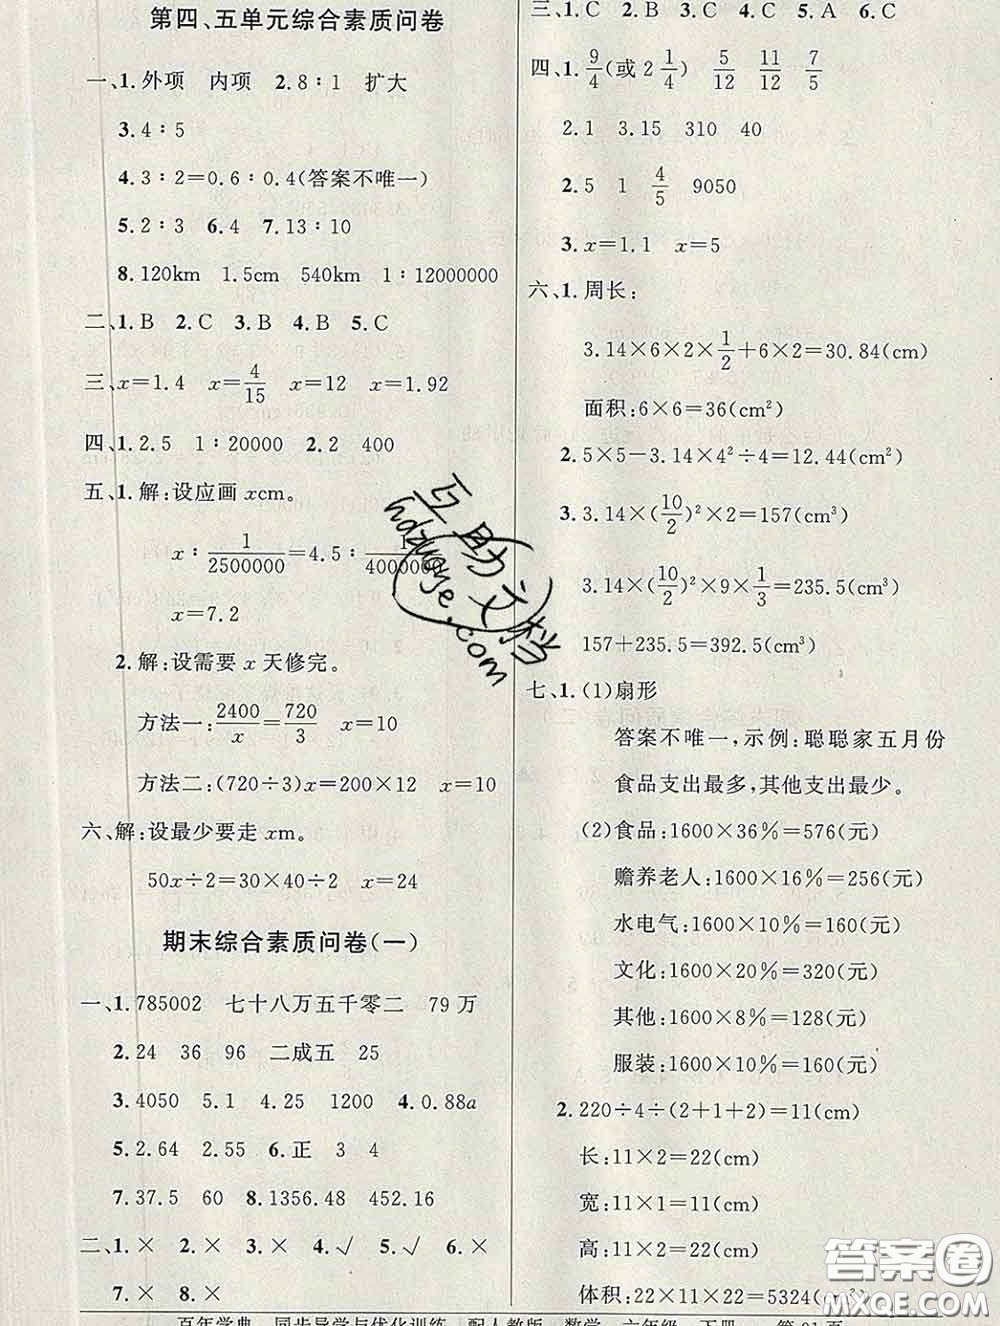 第四、五单元综合素质问卷
一、1.外项 内项 2.8∶1 扩大
3.4∶5
4.3∶2=0.6∶0.4(答案不唯一)
5.2∶3 6.4 7.13∶10
8.120km 1.5cm 540km 1∶12000000
二、1.B 2.C 3.B 4.B 5.C
三、x=1.4 x=4/15 x=12 x=1.92
四、1.2.5 1∶20000 2.2 400
五、1.解:设应画 xcm。
x∶1/2500000=4.5∶1/4000000
x=7.2
2.解:设需要 x 天修完。
方法一:2400/x=720/3 x=10
方法二:(720÷3)x=200×12 x=10
六、解:设最少要走 xm。
50x÷2=30×40÷2 x=24
期末综合素质问卷(一)
一、1.785002 七十八万五千零二 79万
2.24 36 96 二成五 25
3.4050 5.1 4.25 1200 4.0.88a
5.2.64 2.55 6.正 3 4
7.37.5 60 8.1356.48 452.16
二、1.× 2.× 3.× 4.√ 5.√ 6.×
7.× 8.×
三、1.C 2.C 3.C 4.C 5.A 6.C
四、1.9/4(或2 1/4) 5/12 11/12 7/5
2.1 3.15 310 40
2.5 1 4/5 9050
3.x=1.1 x=5
六、1.周长:
3.14×6×2×1/2+6×2=30.84(cm)
面积:6×6=36(cm²)
2.5×5-3.14×4²÷4=12.44(cm²)
3.3.14×(10/2)²×2=157(cm³)
3.14×(10/2)²×9×1/3=235.5(cm³)
157+235.5=392.5(cm³)
七、1.(1)扇形
答案不唯一,示例:聪聪家五月份
食品支出最多,其他支出最少。
(2)食品:1600×36%=576(元)
赡养老人:1600×16%=256(元)
水电气:1600×10%=160(元)
文化:1600×20%=320(元)
其他:1600×8%=128(元)
服装:1600×10%=160(元)
2.220÷4÷(2+1+2)=11(cm)
长:11×2=22(cm)
宽:11×1=11(cm)
高:11×2=22(cm)
体积:22×11×22=5324(cm³)
百年学典 同步导学与优化训练 配人教版 数学 六年级 下册
互助文档
hdzuoye.com
答案圈
MXQE.COM